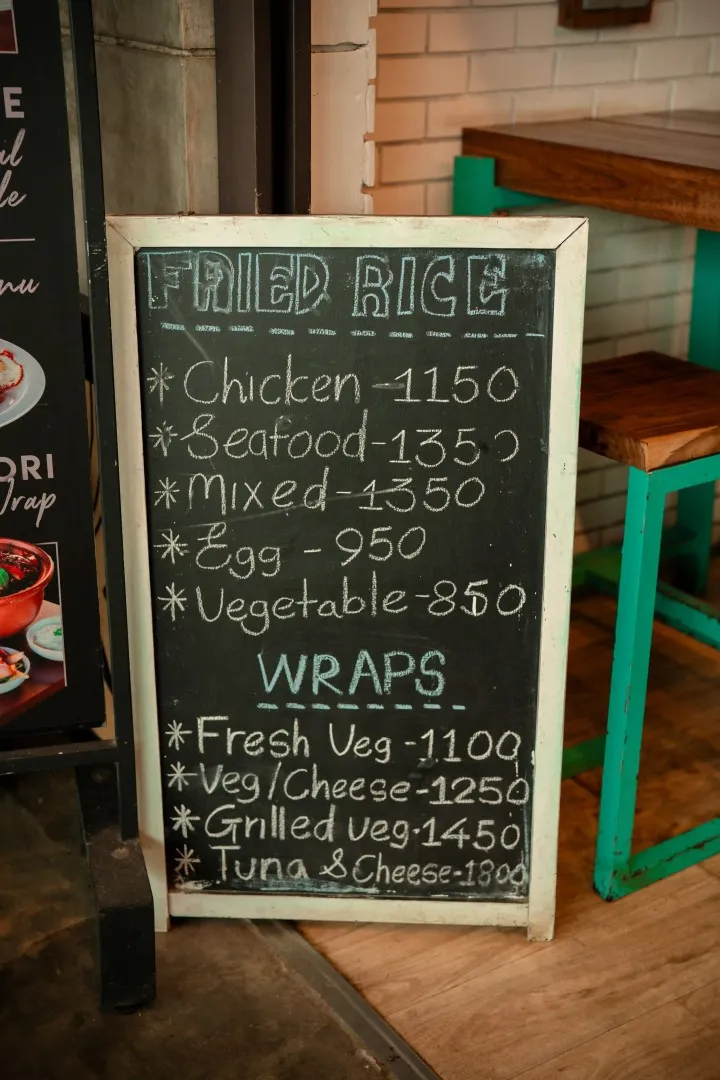 FRIED RICE
* Chicken - 1150
* Seafood - 1350
* Mixed - 1350
* Egg - 950
* Vegetable - 850
WRAPS
* Fresh Veg - 1100
* Veg/Cheese - 1250
* Grilled veg - 1450
* Tuna & Cheese - 1800